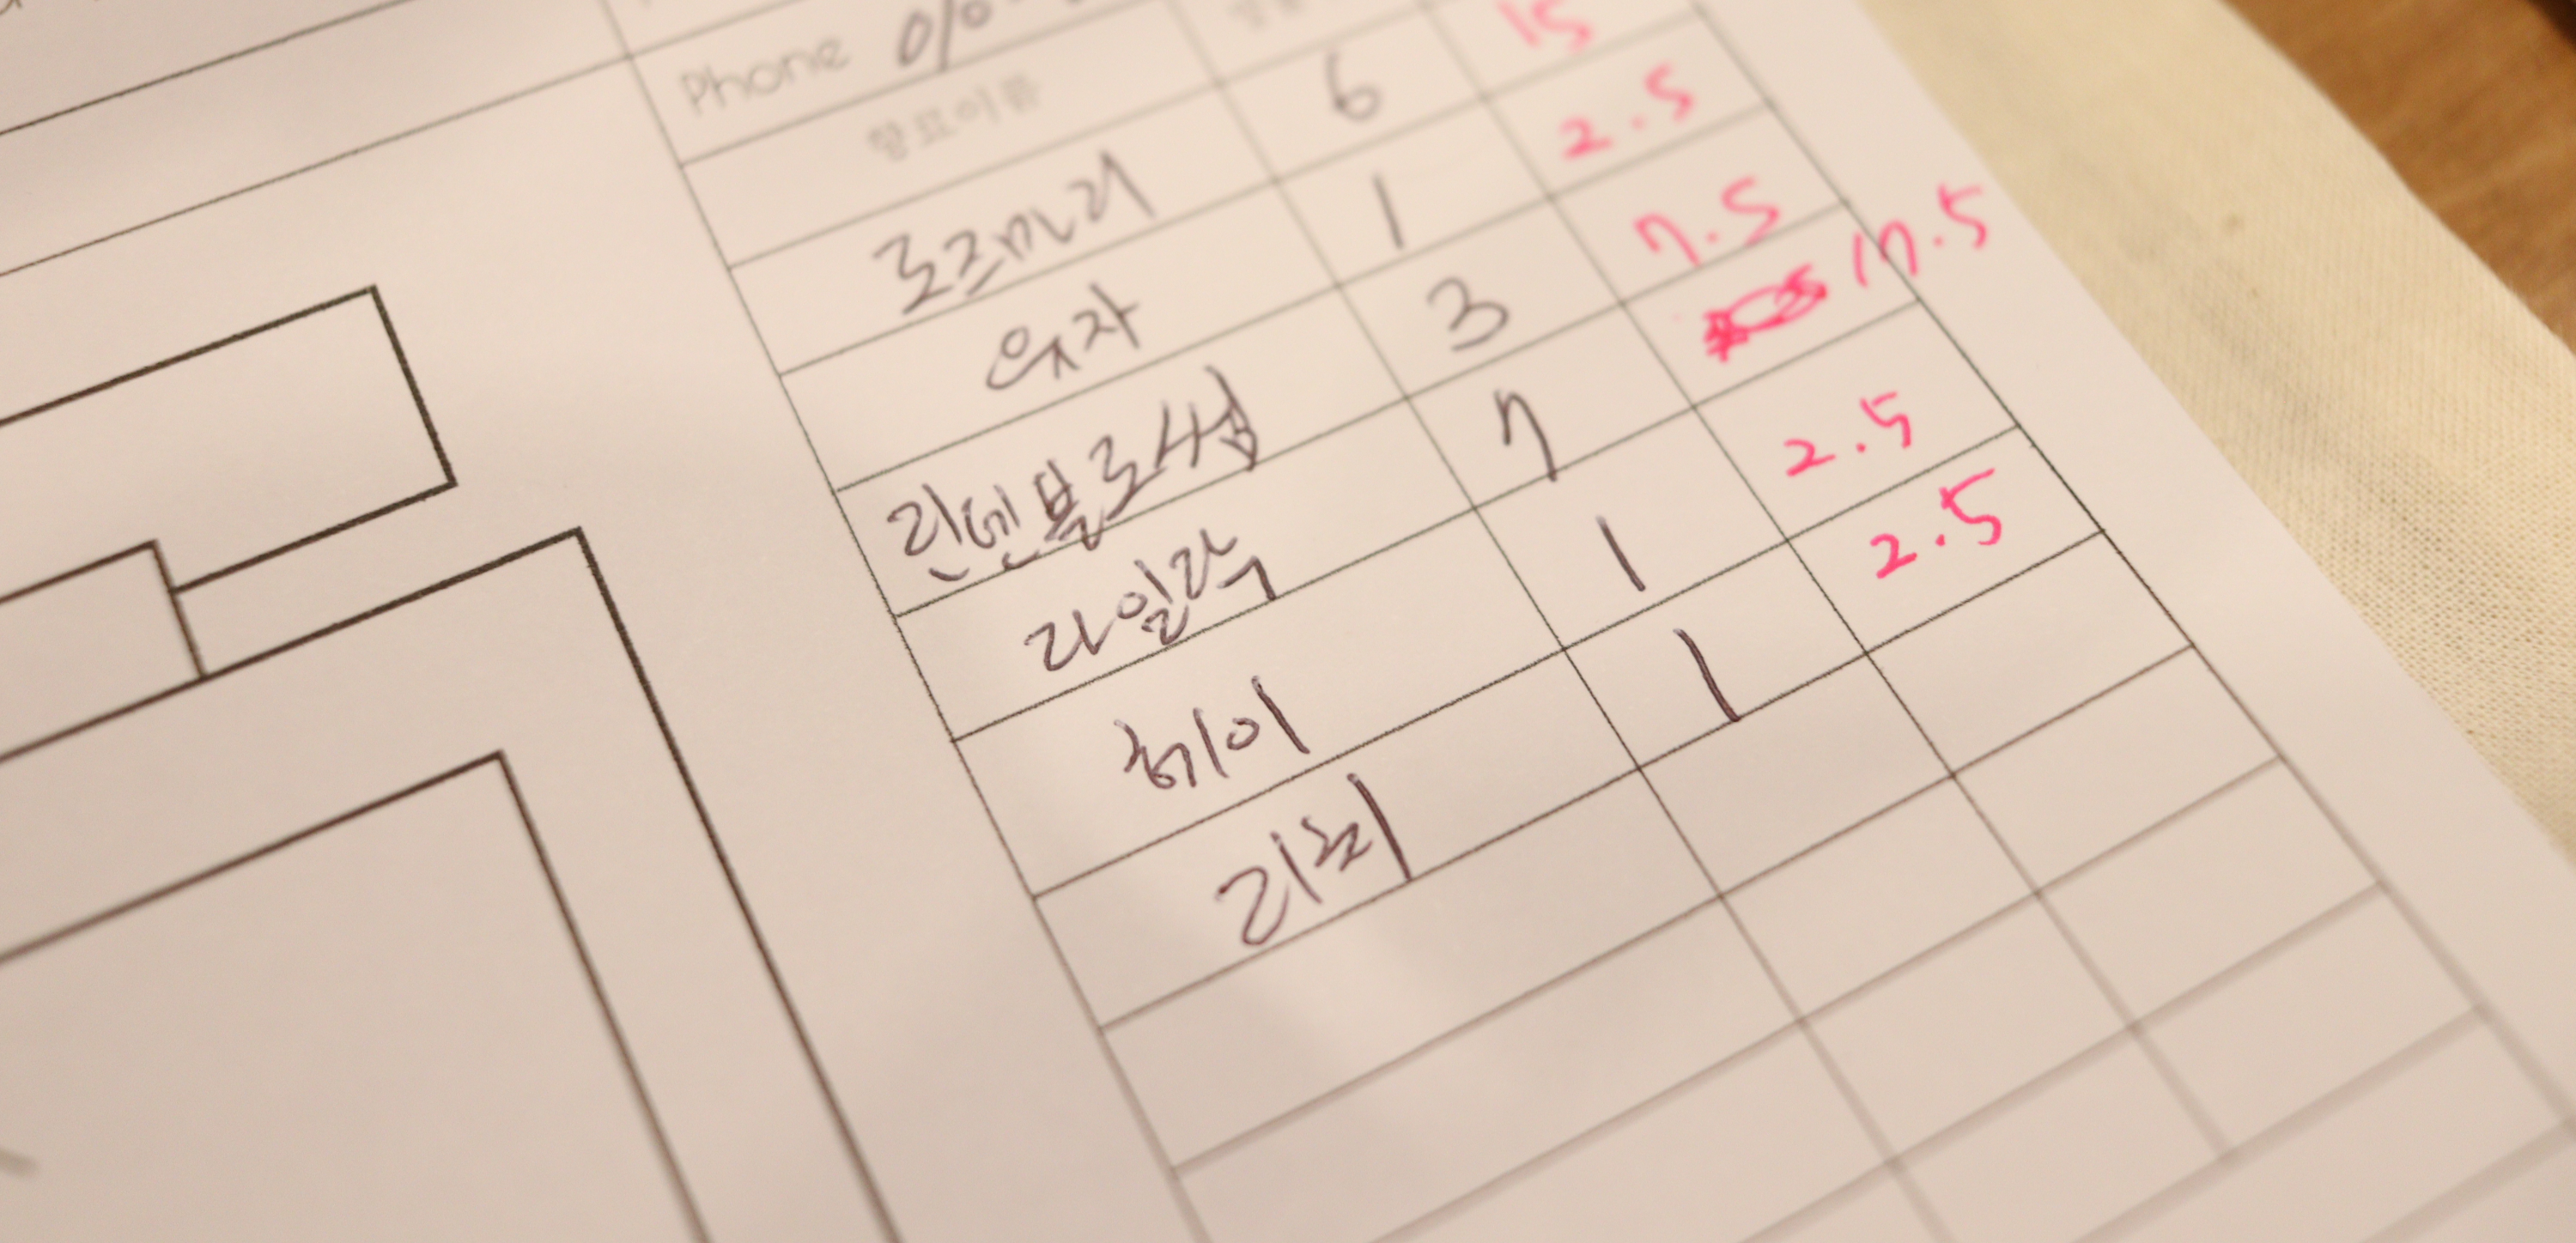 Phone 010-
향료이름
로즈마리 6 15
유자 1 2.5
린덴블로썸 3 7.5
라일락 7 17.5
헤이 1 2.5
리치 1 2.5